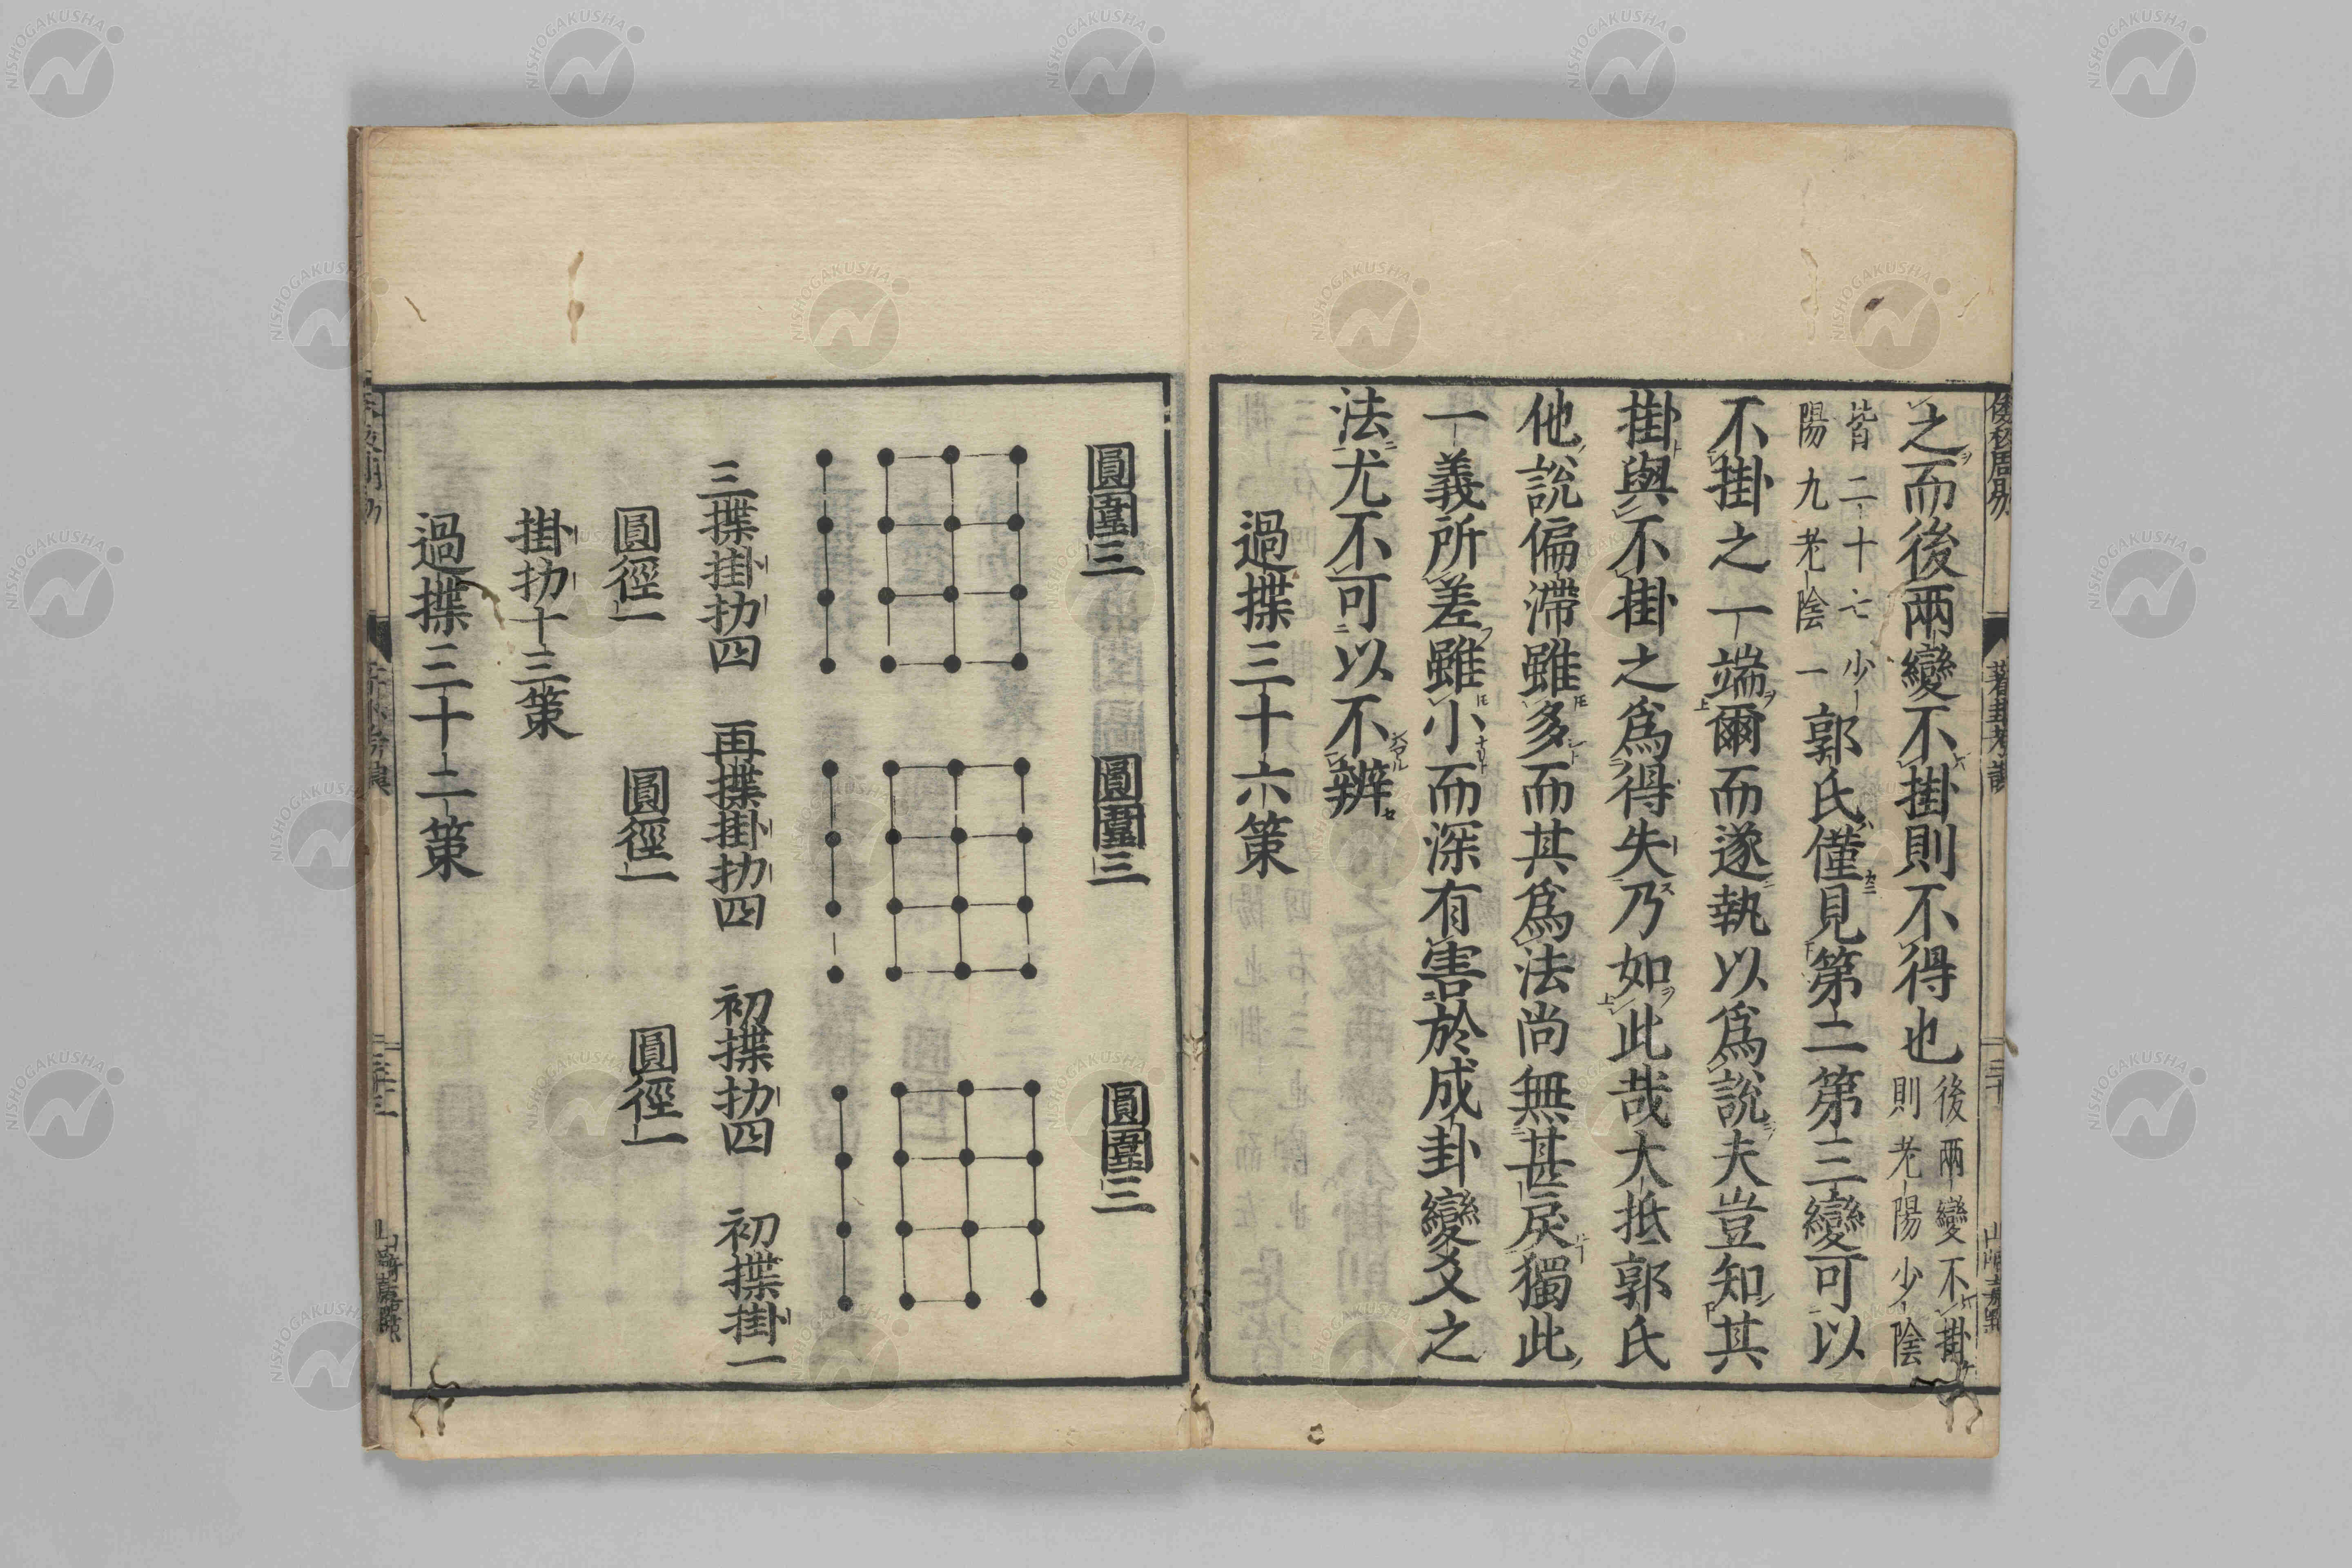 之而後兩變不掛則不得也後兩變不掛則老陽少陰
皆二十七少陽九老陰一郭氏僅見第二第三變可以
不掛之一端爾而遂執以爲說夫豈知其
掛與不掛之爲得失乃如此哉大抵郭氏
他說偏滯雖多而其爲法尚無甚戾獨此
一義所差雖小而深有害於成卦變爻之
法尤不可以不辨
過揲三十六策
圓圍三
圓圍三
圓圍三
三揲掛扐四 再揲掛扐四 初揲扐四 初揲掛一
圓徑一
圓徑一
圓徑一
掛扐十三策
過揲三十二策
蓍卦考誤
三十
NISHOGAKUSHA